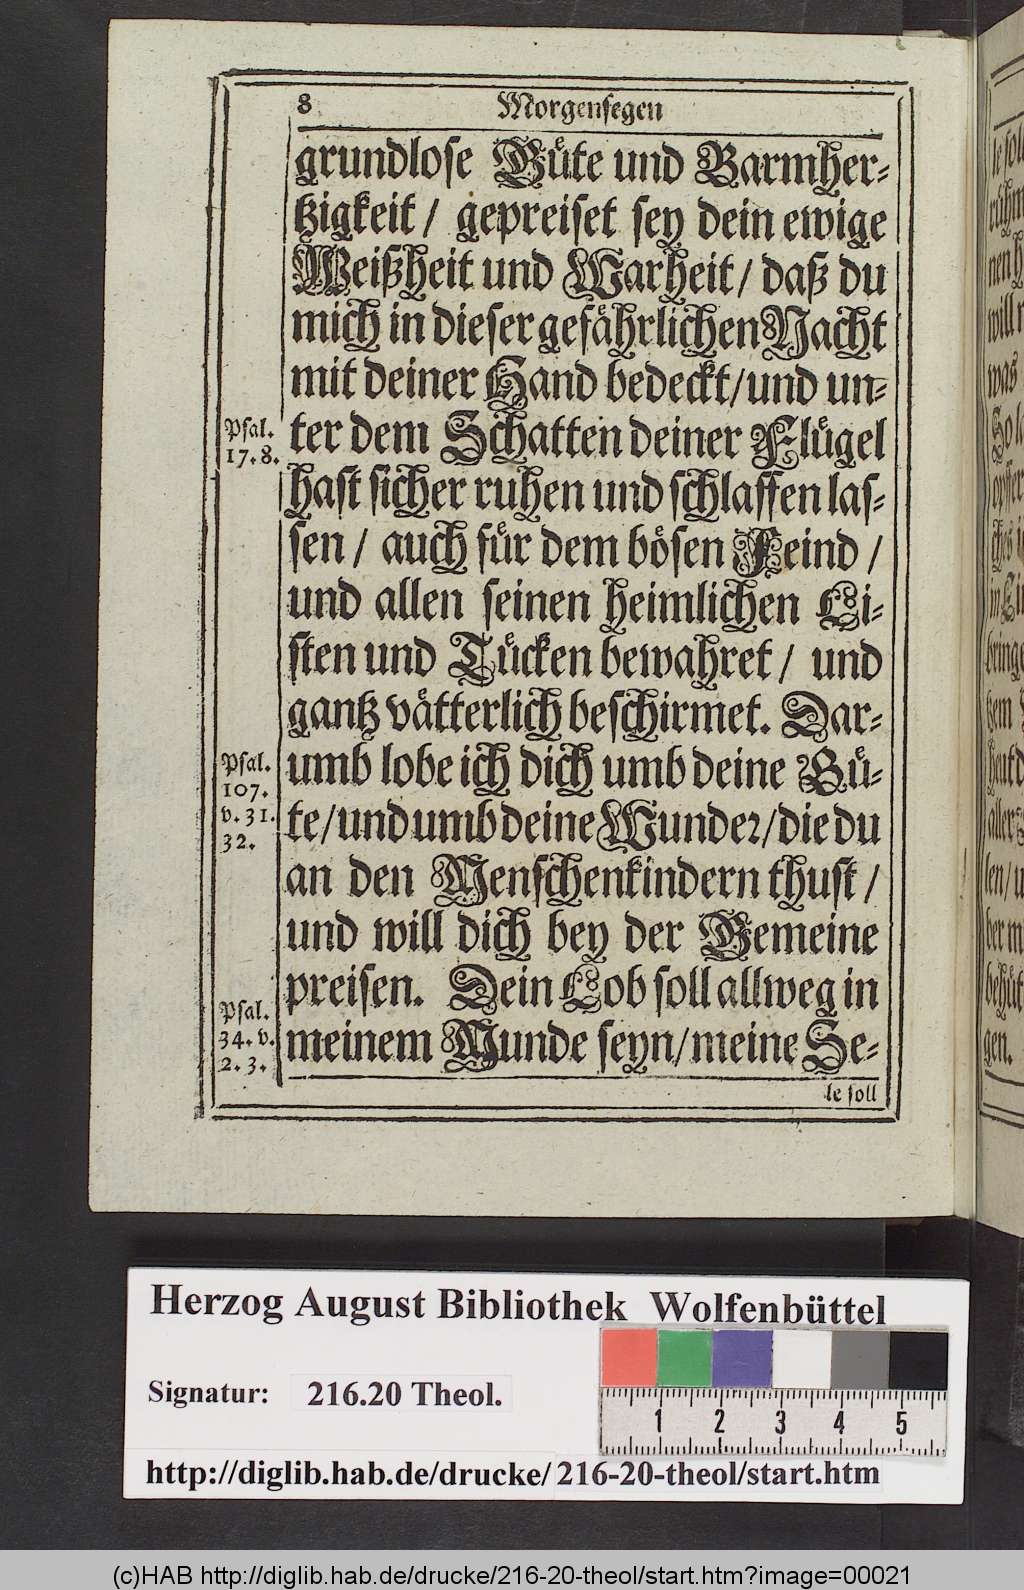 8 Morgensegen
grundlose Güte und Barmher-
tzigkeit / gepreiset sey dein ewige
Weißheit und Warheit / daß du
mich in dieser gefährlichen Nacht
mit deiner Hand bedeckt / und un-
Psal. 17. 8.
ter dem Schatten deiner Flügel
hast sicher ruhen und schlaffen las-
sen / auch für dem bösen Feind /
und allen seinen heimlichen Li-
sten und Tücken bewahret / und
gantz vätterlich beschirmet. Dar-
Psal. 107. v. 31. 32.
umb lobe ich dich umb deine Gü-
te / und umb deine Wunder / die du
an den Menschenkindern thust /
und will dich bey der Gemeine
preisen. Dein Lob soll allweg in
Psal. 34. v. 2. 3.
meinem Munde seyn / meine See-
le soll
Herzog August Bibliothek Wolfenbüttel
Signatur: 216.20 Theol.
1 2 3 4 5
http://diglib.hab.de/drucke/216-20-theol/start.htm
(c)HAB http://diglib.hab.de/drucke/216-20-theol/start.htm?image=00021